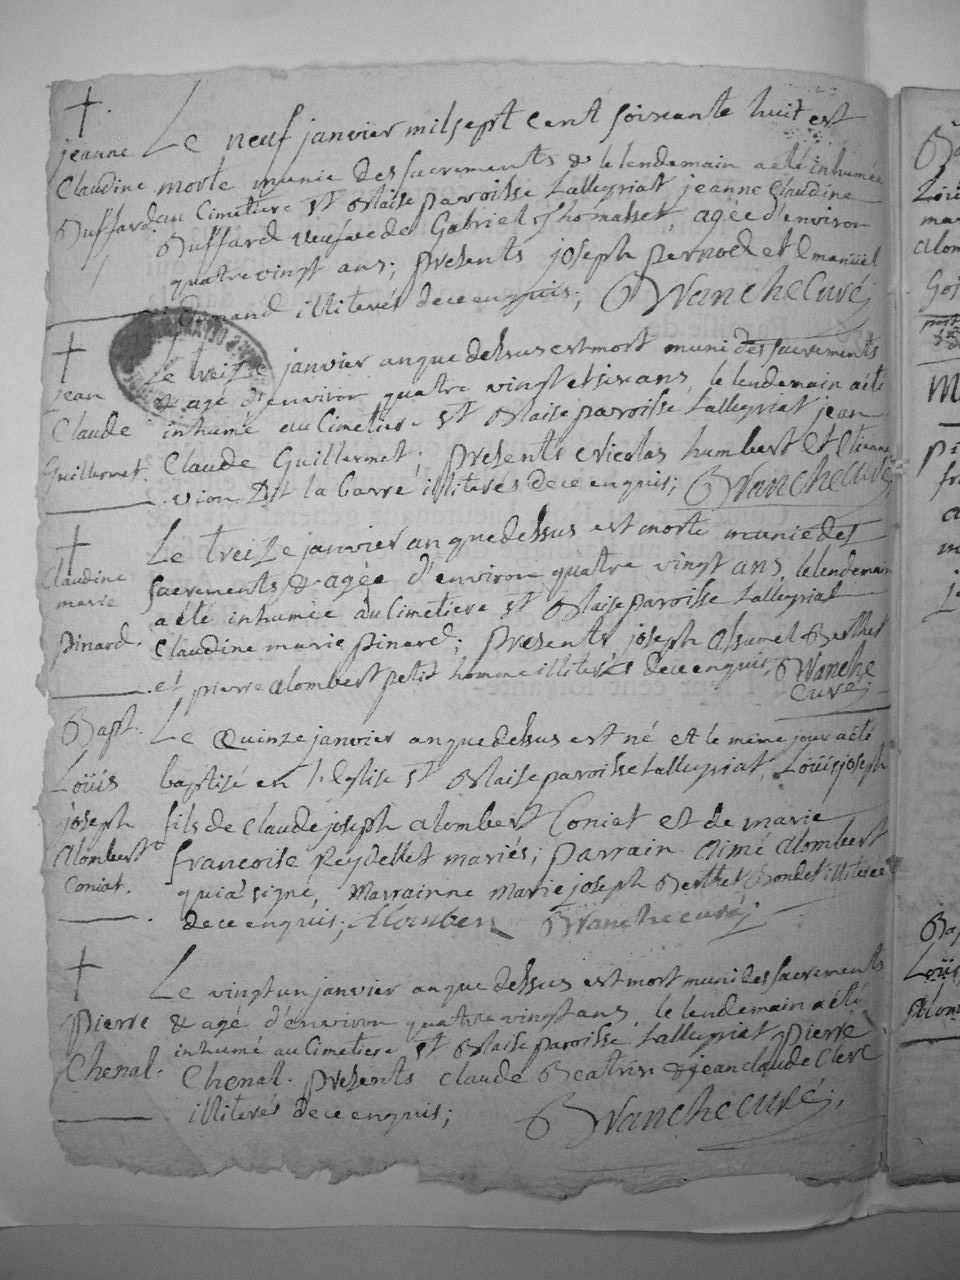 †
jeanne
Claudine
Buffard.
Le neuf janvier mil sept cent soixante huit est
morte munie des sacrements & le lendemain a eté inhumée
au Cimetiere St Blaise paroisse Lalleyriat jeanne Claudine
Buffard veufve de Gabriel Thomasset, agée d'environ
quatre vingt ans; presents joseph pernod et Emanüel
illiterés de ce enquis; Branche Curé
†
jean
Claude
Guillermet.
Le treize janvier an que dessus est mort muni des sacrements
& agé d'environ quatre vingt et six ans, le lendemain a eté
inhumé au Cimetiere St Blaise paroisse Lalleyriat jean
Claude Guillermet; presents Nicolas humbert et Etienne
vion Dit la barre illiterés de ce enquis; Branche Curé
†
Claudine
marie
pinard.
Le treize janvier an que dessus est morte munie des
sacrements & agée d'environ quatre vingt ans, le lendemain
a eté inhumée au Cimetiere St Blaise paroisse Lalleyriat
Claudine marie pinard; presents joseph alsumel Berthet
et pierre alombert petit homme illiterés de ce enquis, Branche
Curé
Bapt.
Loüis
joseph
alombert
Coniat.
Le Quinze janvier an que dessus est né et le même jour a eté
baptisé en l'Eglise St Blaise paroisse Lalleyriat, Loüis joseph
fils de Claude joseph alombert Coniat et de marie
francoise Reydellet mariés; parrain aimé alombert
qui a signé, Marrainne marie joseph Berthet Bondet illiterée
de ce enquis; alombert Branche curé
†
pierre
Chenal.
Le vingt un janvier an que dessus est mort muni des sacrements
& agé d'environ quatre vingt ans, le lendemain a eté
inhumé au Cimetiere St Blaise paroisse Lalleyriat pierre
Chenal. presents Claude Beatrix & jean claude Clerc
illiterés de ce enquis; Branche curé